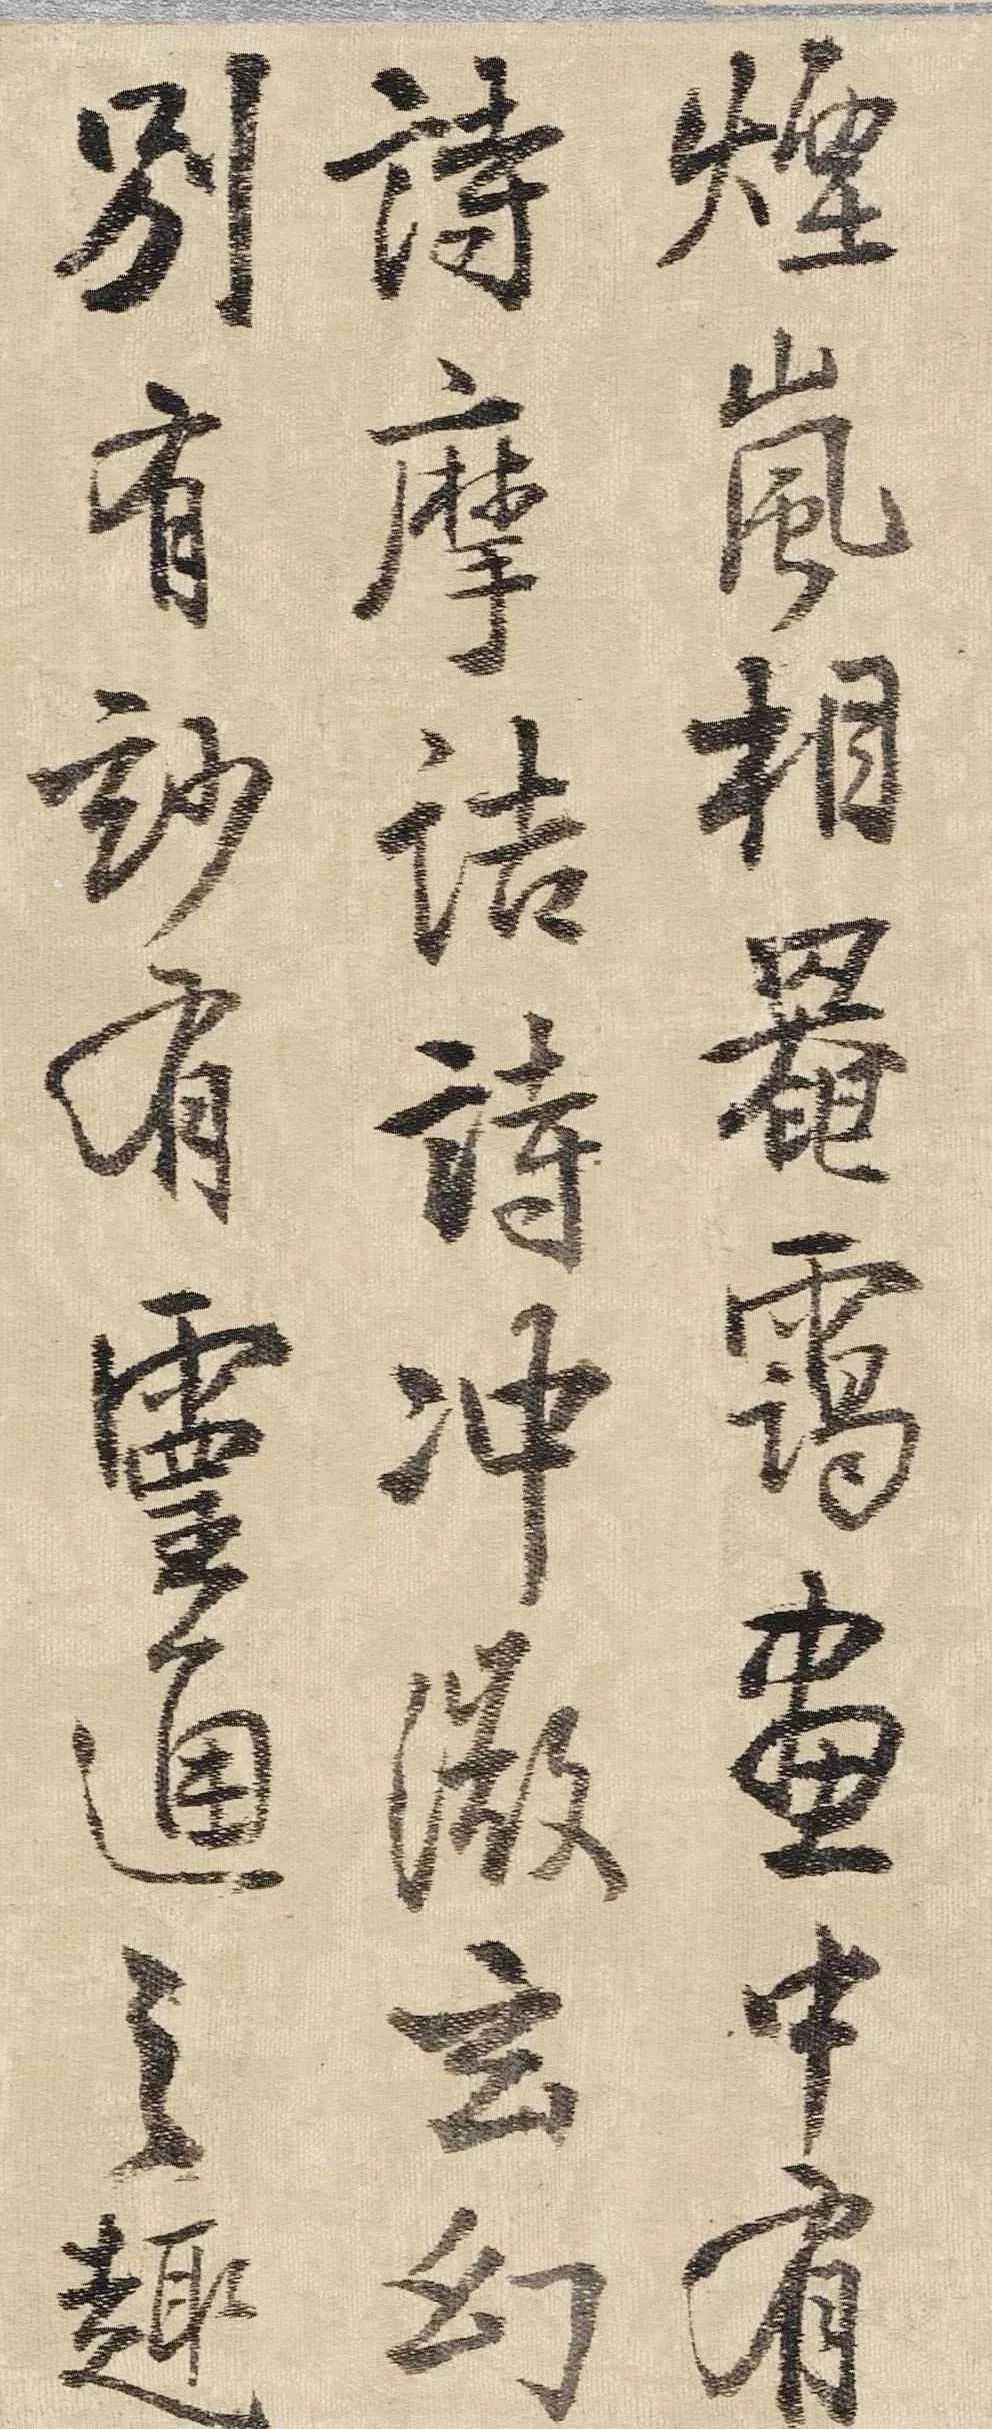 煙嵐相罨靄畫中有
詩摩詰詩冲澂玄幻
別有玅有靈通之趣